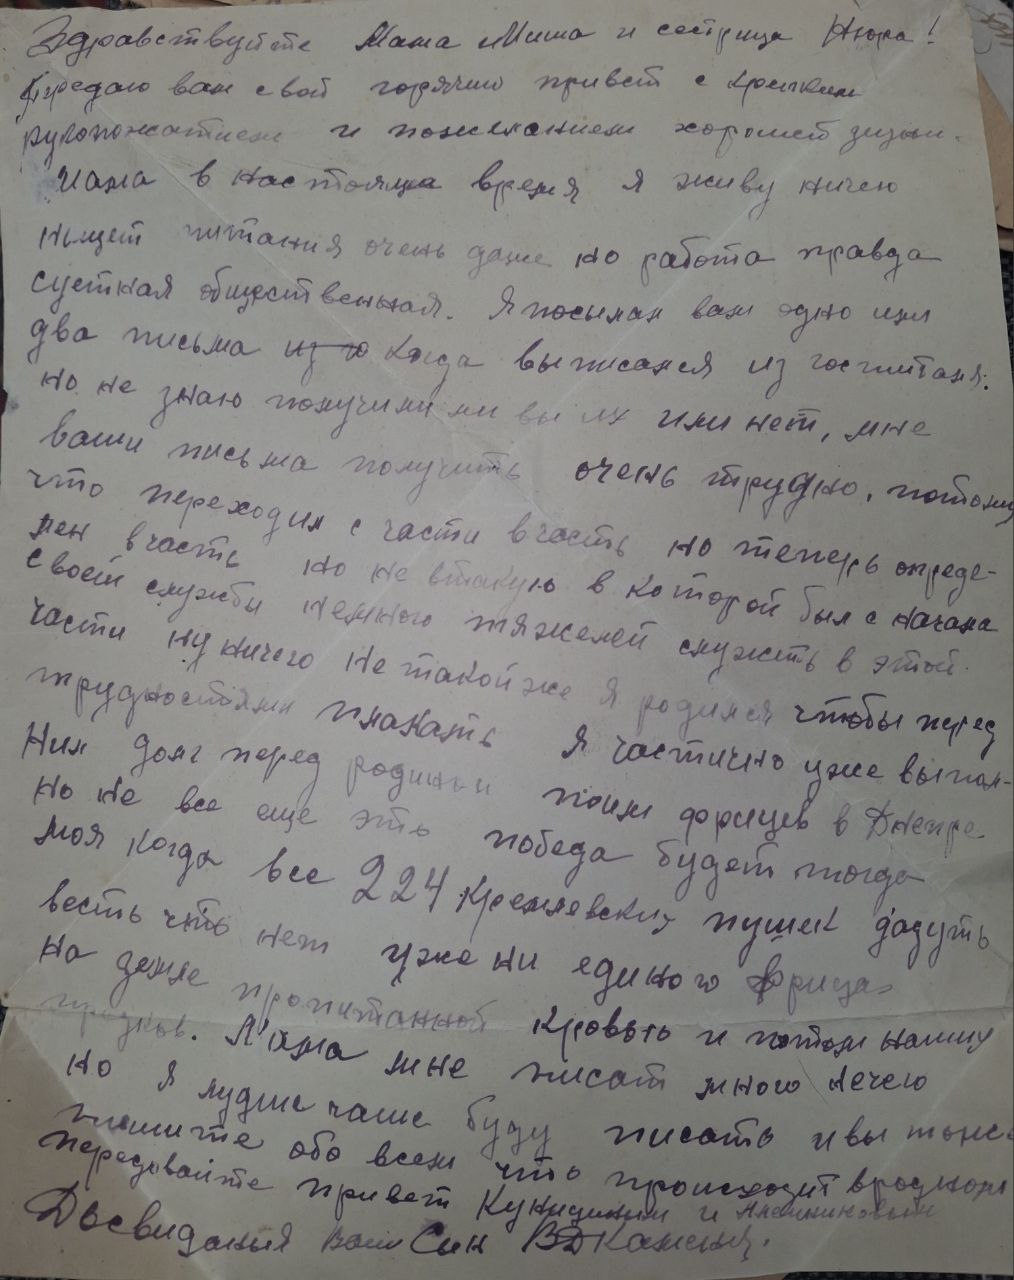 Здравствуйте Мама Миша и сестрица Нюра!
Передаю вам свой горячий привет с крепким
рукопожатием и пожеланием хорошей жизни.
Мама в настояща время я живу ничево
питания очень даже но работа правда
суетная общественная. Я посылал вам одно или
два письма из го когда выписался из госпиталя.
но не знаю получили ли вы их или нет, мне
ваши письма получить очень трудно, потому
что переходил с части в часть но теперь опреде-
лен в часть но не в такую в которой был с начала
своей службы немного тяжелей служить в этой
части ну ничего не такой же я родился чтобы перед
трудностями плакать я частично уже выпол-
нил долг перед родиной поил фрицев в Днепре
но не все еще это победа будет тогда
моя когда все 224 кремлевских пушек дадуть
весть что нет уже ни единого фрица
на земле пропитанной кровью и потом наших
Мама мне писат много нечево
но я лудше чаще буду писать и вы тоже
пишите обо всем что происходит в родном
передовайте привет и
Досвидания Ваш Син